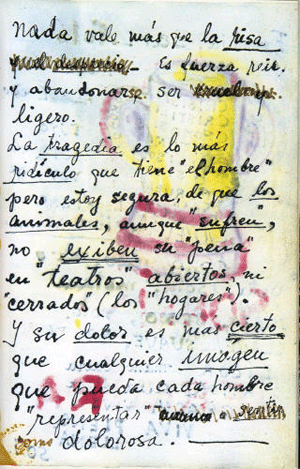 Nada vale más que la risa
y el desprecio - Es fuerza reir.
y abandonarse ser cruel y
ligero.
La tragedia es lo más
ridículo que tiene "el hombre"
pero estoy segura, de que los
animales, aunque "sufren",
no exiben su "pena"
en "teatros" abiertos, ni
"cerrados" (los "hogares").
Y su dolor es mas cierto
que cualquier imagen
que pueda cada hombre
"representar" o sentir
como dolorosa.